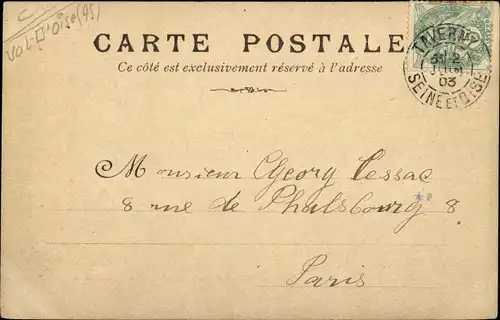 Val-d'Oise (95)
CARTE POSTALE
Ce côté est exclusivement réservé à l'adresse
TAVERNY
03
SEINE ET OISE
Monsieur Georg Cessac
8 rue de Phalsbourg 8
Paris